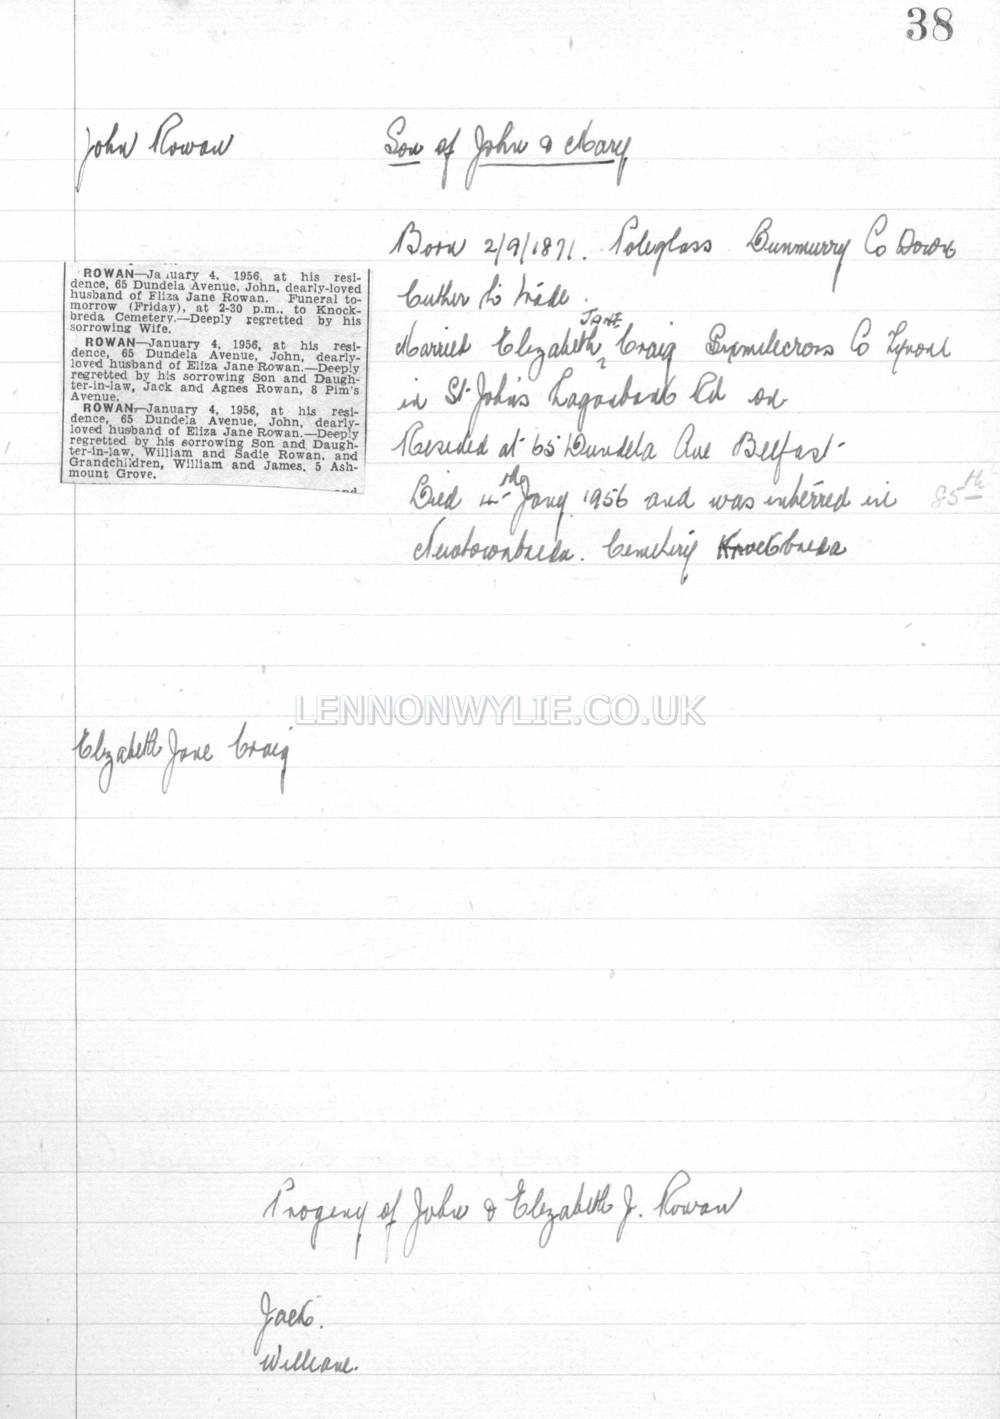 38
John Rowan
Son of John & Mary
Born 2/9/1871. Poleglass Dunmurry Co Down
Cutter to trade.
JANE
Married Elizabeth Craig Sixmilecross Co Tyrone
in St. John's Laganbank Rd on
Resided at 65 Dundela Ave Belfast
Died 4th Jany 1956 and was interred in 85th
Newtownbreda. Cemetery Knockbreda
ROWAN—January 4, 1956, at his resi-
dence, 65 Dundela Avenue, John, dearly-loved
husband of Eliza Jane Rowan. Funeral to-
morrow (Friday), at 2-30 p.m., to Knock-
breda Cemetery.—Deeply regretted by his
sorrowing Wife.
ROWAN—January 4, 1956, at his resi-
dence, 65 Dundela Avenue, John, dearly-
loved husband of Eliza Jane Rowan.—Deeply
regretted by his sorrowing Son and Daugh-
ter-in-law, Jack and Agnes Rowan, 8 Pim's
Avenue.
ROWAN—January 4, 1956, at his resi-
dence, 65 Dundela Avenue, John, dearly-
loved husband of Eliza Jane Rowan.—Deeply
regretted by his sorrowing Son and Daugh-
ter-in-law, William and Sadie Rowan, and
Grandchildren, William and James, 5 Ash-
mount Grove.
LENNONWYLIE.CO.UK
Elizabeth Jane Craig
Progeny of John & Elizabeth J. Rowan
Jack.
William.